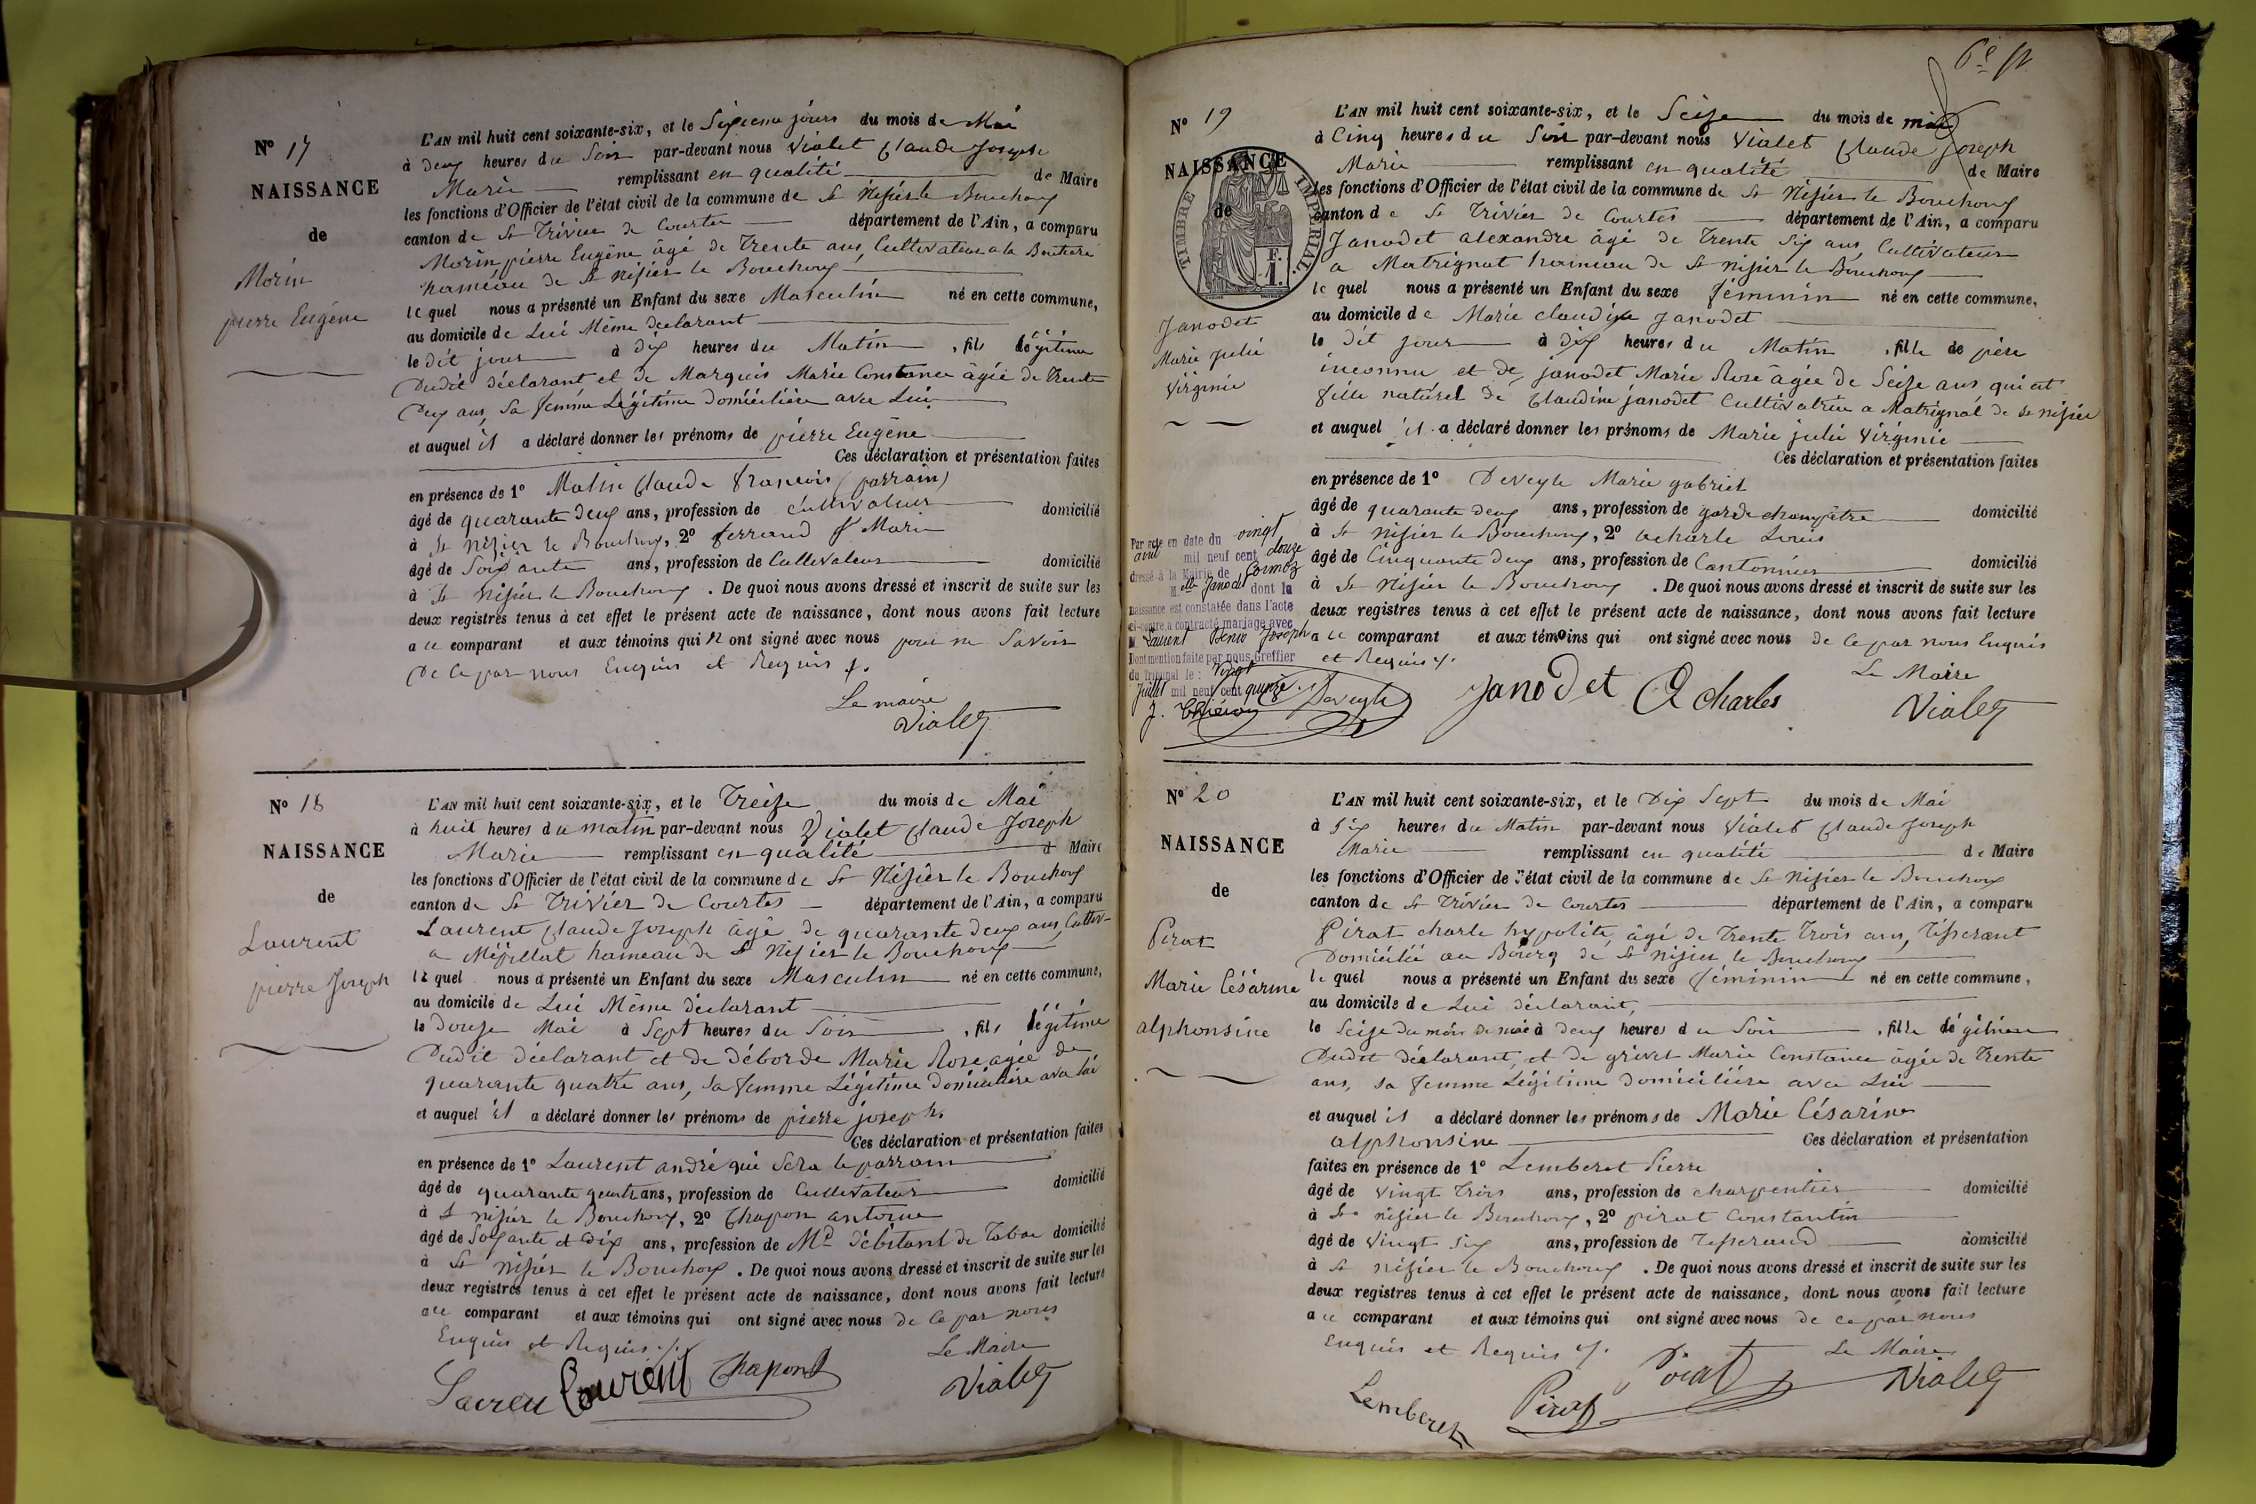 Nº 17
NAISSANCE
de
Morin
pierre Eugène
L'AN mil huit cent soixante-six, et le Sixieme jours du mois de Mai
à deux heures du Soir par-devant nous Vialet Claude Joseph
Marie remplissant en qualité de Maire
les fonctions d'Officier de l'état civil de la commune de St Nisier le Bouchoux
canton de St Trivier de Courtes département de l'Ain, a comparu
Morin pierre Eugène âgé de Trente ans, Cultivateur a la
hameau de St nisier le Bouchoux
lequel nous a présenté un Enfant du sexe Masculin né en cette commune,
au domicile de Lui Même déclarant
le dit jour à dix heures du Matin, fils légitime
Dudit déclarant et de Marquis Marie Constance âgée de Trente
Deux ans, Sa femme Légitime domicilière avec Lui
et auquel il a déclaré donner les prénoms de pierre Eugène
Ces déclaration et présentation faites
en présence de 1º Claude francois (parrain)
âgé de quarante deux ans, profession de cultivateur domicilié
à St Nisier le Bouchoux, 2º ferrand Marin
âgé de Soixante ans, profession de Cultivateur domicilié
à St nisier le Bouchoux. De quoi nous avons dressé et inscrit de suite sur les
deux registres tenus à cet effet le présent acte de naissance, dont nous avons fait lecture
a ce comparant et aux témoins qui N ont signé avec nous pour ne Savoir
De ce par nous Enquis et Requis
Le maire
Vialet
Nº 18
NAISSANCE
de
Laurent
pierre Joseph
L'AN mil huit cent soixante-six, et le Treize du mois de Mai
à huit heures du matin par-devant nous Vialet Claude Joseph
Marie remplissant en qualité d Maire
les fonctions d'Officier de l'état civil de la commune de St Nisier le Bouchoux
canton de St Trivier de Courtes département de l'Ain, a comparu
Laurent Claude Joseph âgé de quarante deux ans, Cultiv-
a Mézillat hameau de St Nisier le Bouchoux
lequel nous a présenté un Enfant du sexe Masculin né en cette commune,
au domicile de Lui Même déclarant
le Douze Mai à Sept heures du Soir, fils légitime
Dudit déclarant et de déborde Marie Rose agée de
quarante quatre ans, sa femme Légitime domicilière avec lui
et auquel il a déclaré donner les prénoms de pierre joseph
Ces déclaration et présentation faites
en présence de 1º Laurent andré qui Sera le parrain
âgé de quarante quatre ans, profession de Cultivateur domicilié
à St nisier le Bouchoux, 2º Chapon antoine
âgé de Soixante et dix ans, profession de Md débitant de Tabac domicilié
à St nisier le Bouchoux. De quoi nous avons dressé et inscrit de suite sur les
deux registres tenus à cet effet le présent acte de naissance, dont nous avons fait lecture
a ce comparant et aux témoins qui ont signé avec nous de ce par nous
Enquis et Requis
Le Maire
Laurent Chapon Vialet
6e
Nº 19
NAISSANCE
de
TIMBRE IMPERIAL
1 F.
Janodet
Marie Julie
Virginie
L'AN mil huit cent soixante-six, et le Seize du mois de mai
à Cinq heures du Soir par-devant nous Vialet Claude Joseph
Marie remplissant en qualité de Maire
les fonctions d'Officier de l'état civil de la commune de St Nisier le Bouchoux
canton de St Trivier de Courtes département de l'Ain, a comparu
Janodet alexandre âgé de Trente Six ans, Cultivateur
a Matrignat hameau de St nisier le Bouchoux
lequel nous a présenté un Enfant du sexe féminin né en cette commune,
au domicile de Marie claudine Janodet
le dit jour à dix heures du Matin, fille de père
inconnu et de janodet Marie Rose âgée de Seize ans qui est
fille naturel de Claudine janodet Cultivatrice a Matrignat de St nisier
et auquel il a déclaré donner les prénoms de Marie julie Virginie
Ces déclaration et présentation faites
en présence de 1º Deveyle Marie gabriel
âgé de quarante deux ans, profession de garde champêtre domicilié
à St nisier le Bouchoux, 2º acharle Louis
âgé de Cinquante deux ans, profession de Cantonnier domicilié
à St nisier le Bouchoux. De quoi nous avons dressé et inscrit de suite sur les
deux registres tenus à cet effet le présent acte de naissance, dont nous avons fait lecture
a ce comparant et aux témoins qui ont signé avec nous de ce par nous Enquis
et Requis
Par acte en date du vingt
avril mil neuf cent douze
dressé à la Mairie de Cormoz
Mlle Janodet dont la
naissance est constatée dans l'acte
ci-contre, a contracté mariage avec
M. Laurent Denis Joseph
Dont mention faite par nous Greffier
du Tribunal le: vingt
Juillet mil neuf cent quinze
Deveyle Janodet Acharles
Le Maire
Vialet
Nº 20
NAISSANCE
de
Pirat
Marie Césarine
alphonsine
L'AN mil huit cent soixante-six, et le Dix Sept du mois de Mai
à Six heures du Matin par-devant nous Vialet Claude Joseph
Marie remplissant en qualité de Maire
les fonctions d'Officier de l'état civil de la commune de St Nisier le Bouchoux
canton de St Trivier de Courtes département de l'Ain, a comparu
Pirat charle hypolite, âgé de Trente Trois ans, Tisserant
Domicilié au Bourg de St nisier le Bouchoux
lequel nous a présenté un Enfant du sexe féminin né en cette commune,
au domicile de Lui déclarant,
le Seize du mois de mai à deux heures du Soir, fille légitime
Dudit déclarant, et de grivet Marie Constance âgée de Trente
ans, sa femme Légitime domicilière avec Lui
et auquel il a déclaré donner les prénoms de Marie Césarine
alphonsine Ces déclaration et présentation
faites en présence de 1º Lemberet Pierre
âgé de Vingt Trois ans, profession de charpentier domicilié
à St nisier le Bouchoux, 2º pirat Constantin
âgé de Vingt Six ans, profession de Tisserand domicilié
à St nisier le Bouchoux. De quoi nous avons dressé et inscrit de suite sur les
deux registres tenus à cet effet le présent acte de naissance, dont nous avons fait lecture
a ce comparant et aux témoins qui ont signé avec nous de ce par nous
Enquis et Requis
Le Maire
Lemberet Pirat Pirat Vialet